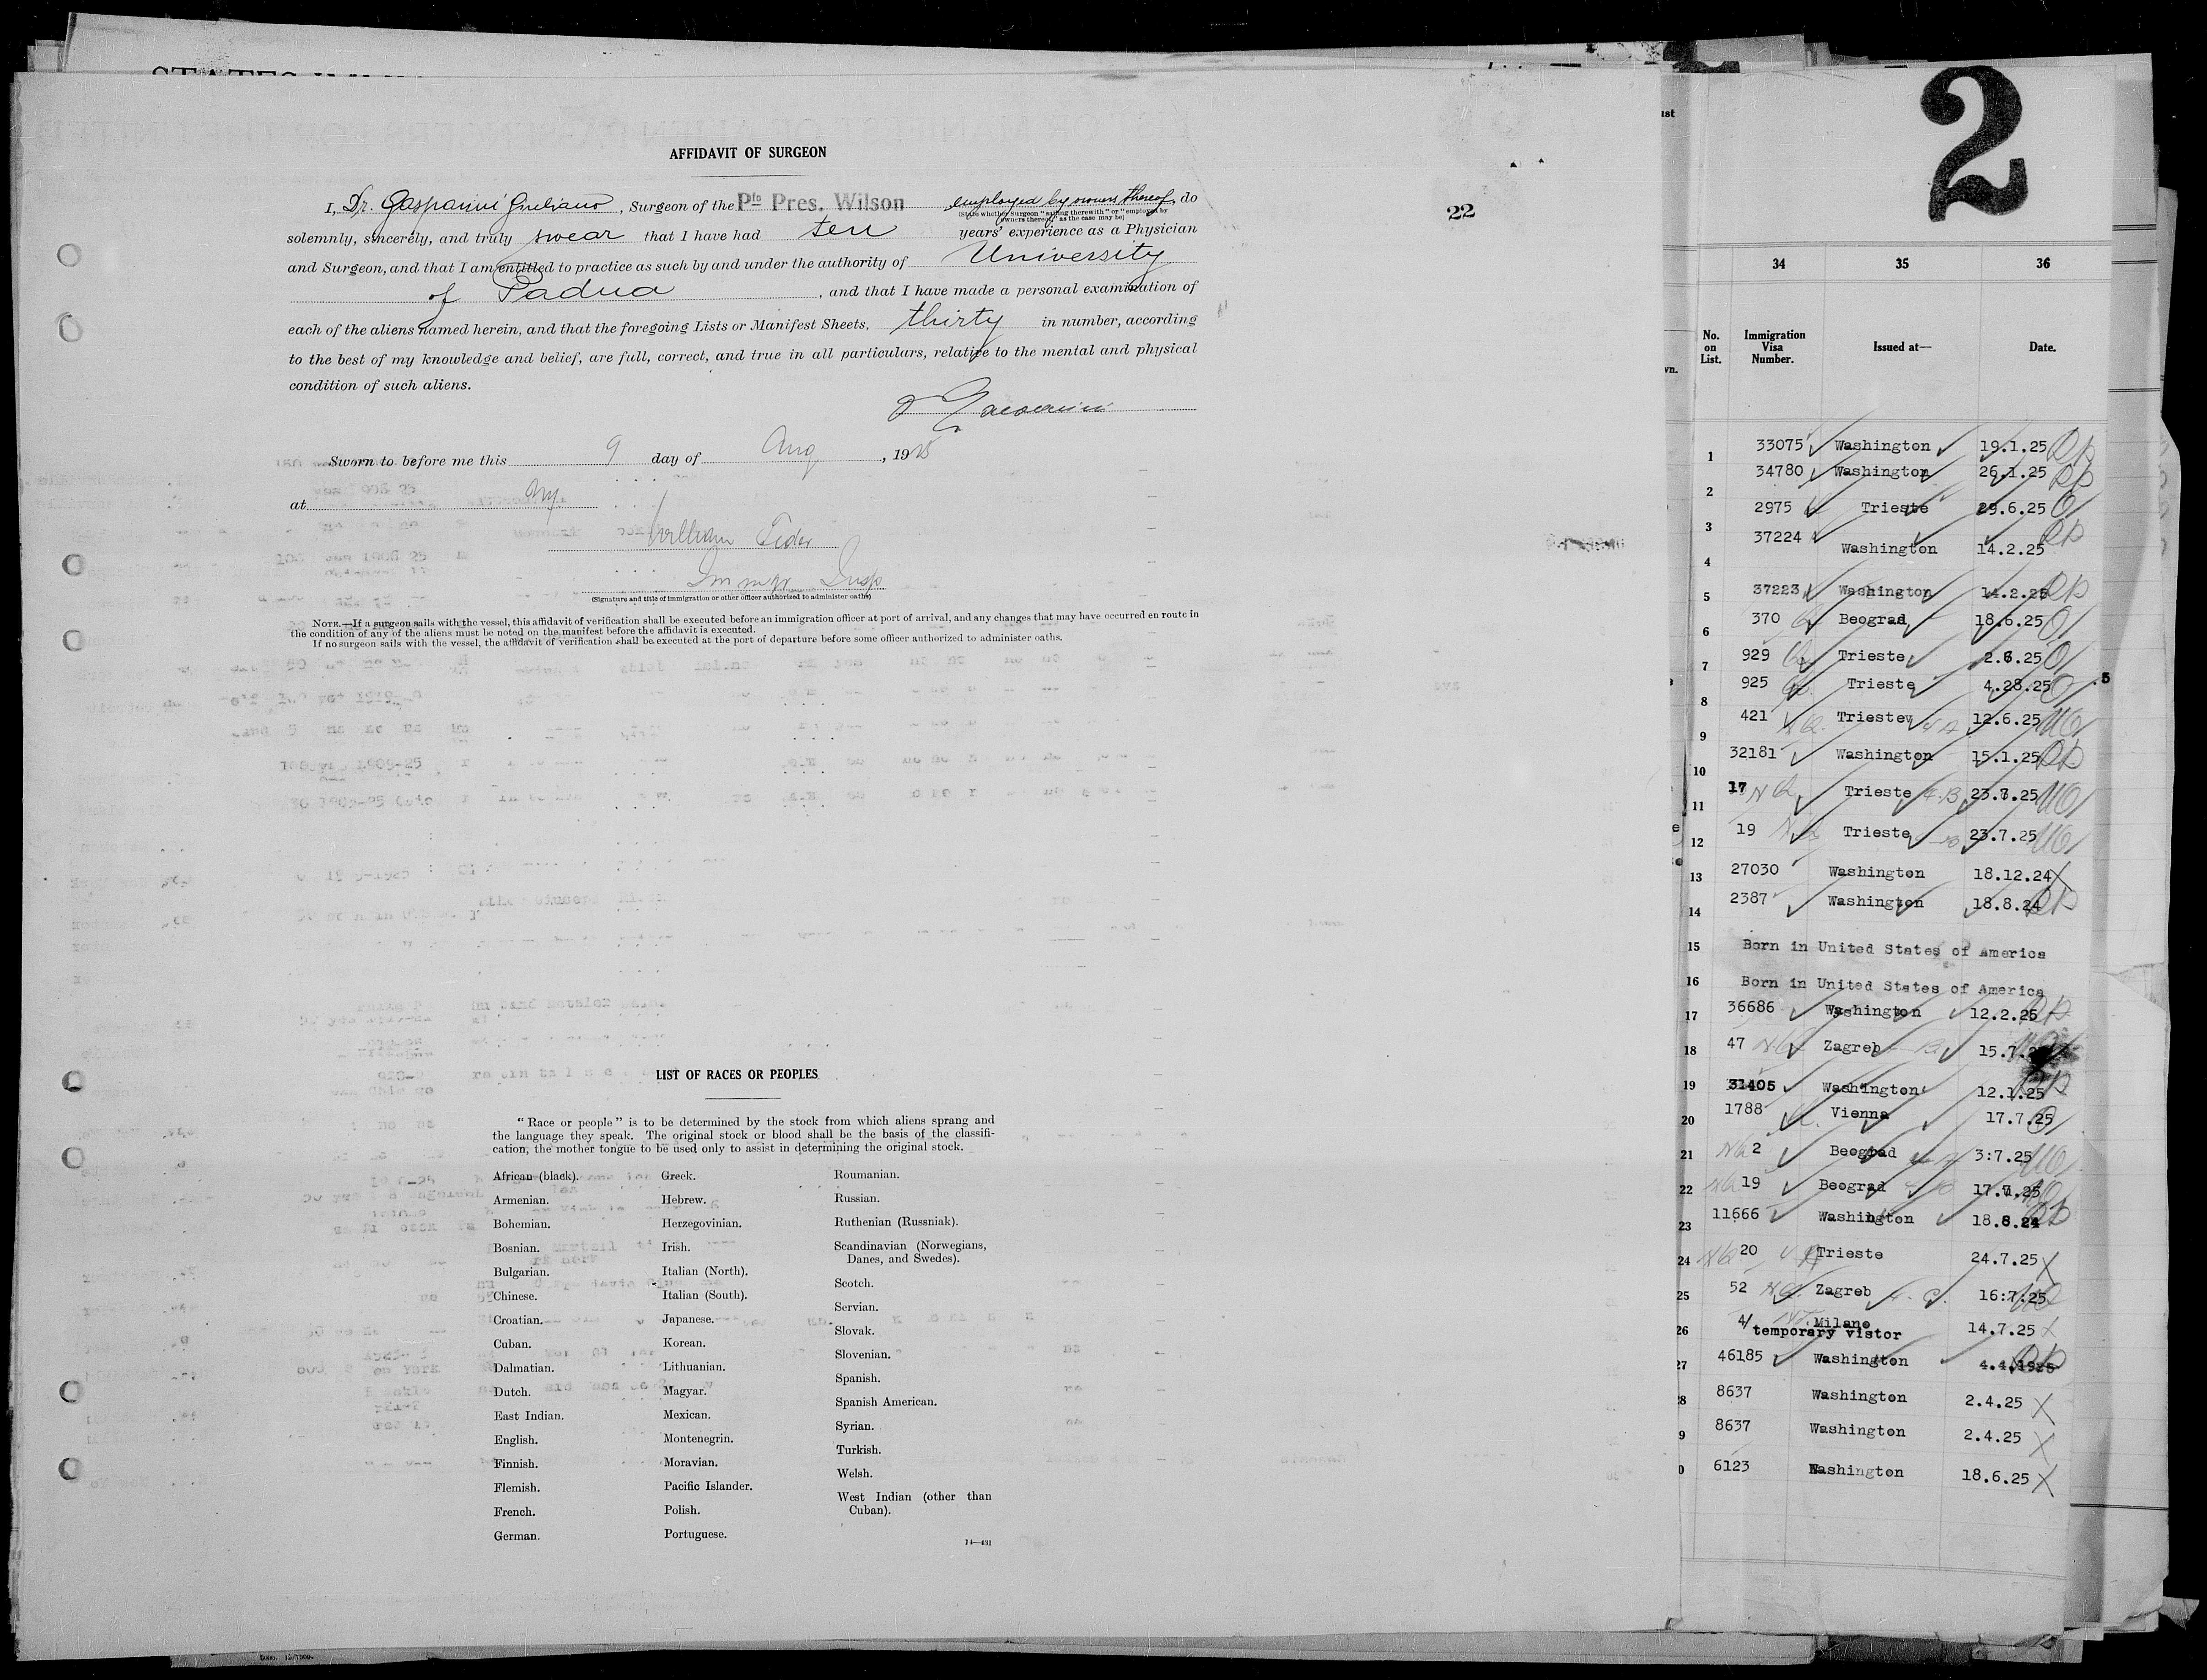 AFFIDAVIT OF SURGEON
I, Dr. Gasparini Giuliano, Surgeon of the Pfo Pres. Wilson employed by owners thereof, do
(State whether Surgeon "sailing therewith" or "employed by owners thereof," as the case may be)
solemnly, sincerely, and truly swear that I have had ten years' experience as a Physician
and Surgeon, and that I am entitled to practice as such by and under the authority of University
of Padua, and that I have made a personal examination of
each of the aliens named herein, and that the foregoing Lists or Manifest Sheets, thirty in number, according
to the best of my knowledge and belief, are full, correct, and true in all particulars, relative to the mental and physical
condition of such aliens.
Sworn to before me this 9 day of Aug, 1925
at NY.
William
Immgr Insp
(Signature and title of immigration or other officer authorized to administer oaths)
NOTE.—If a surgeon sails with the vessel, this affidavit of verification shall be executed before an immigration officer at port of arrival, and any changes that may have occurred en route in
the condition of any of the aliens must be noted on the manifest before the affidavit is executed.
If no surgeon sails with the vessel, the affidavit of verification shall be executed at the port of departure before some officer authorized to administer oaths.
22
LIST OF RACES OR PEOPLES
"Race or people" is to be determined by the stock from which aliens sprang and
the language they speak. The original stock or blood shall be the basis of the classifi-
cation, the mother tongue to be used only to assist in determining the original stock.
African (black).
Armenian.
Bohemian.
Bosnian.
Bulgarian.
Chinese.
Croatian.
Cuban.
Dalmatian.
Dutch.
East Indian.
English.
Finnish.
Flemish.
French.
German.
Greek.
Hebrew.
Herzegovinian.
Irish.
Italian (North).
Italian (South).
Japanese.
Korean.
Lithuanian.
Magyar.
Mexican.
Montenegrin.
Moravian.
Pacific Islander.
Polish.
Portuguese.
Roumanian.
Russian.
Ruthenian (Russniak).
Scandinavian (Norwegians,
Danes, and Swedes).
Scotch.
Servian.
Slovak.
Slovenian.
Spanish.
Spanish American.
Syrian.
Turkish.
Welsh.
West Indian (other than
Cuban).
14—431
2
34 35 36
No. on List. Immigration Visa Number. Issued at— Date.
1 33075 Washington 19.1.25
2 34780 Washington 26.1.25
3 2975 Trieste 29.6.25
4 37224 Washington 14.2.25
5 37223 Washington 14.2.25
6 370 Beograd 18.6.25
7 929 Trieste 2.6.25
8 925 Trieste 4.28.25
9 421 Trieste 12.6.25
10 32181 Washington 15.1.25
11 17 Trieste 23.7.25
12 19 Trieste 23.7.25
13 27030 Washington 18.12.24
14 2387 Washington 18.8.24
15 Born in United States of America
16 Born in United States of America
17 36686 Washington 12.2.25
18 47 Zagreb 15.7.
19 31405 Washington 12.1.25
20 1788 Vienna 17.7.25
21 2 Beograd 3:7.25
22 19 Beograd 17.7.25
23 11666 Washington 18.8.24
24 20 Trieste 24.7.25
25 52 Zagreb 16:7.25
26 4/ Milano 14.7.25
temporary vistor
27 46185 Washington 4.4.1925
8 8637 Washington 2.4.25
9 8637 Washington 2.4.25
0 6123 Washington 18.6.25